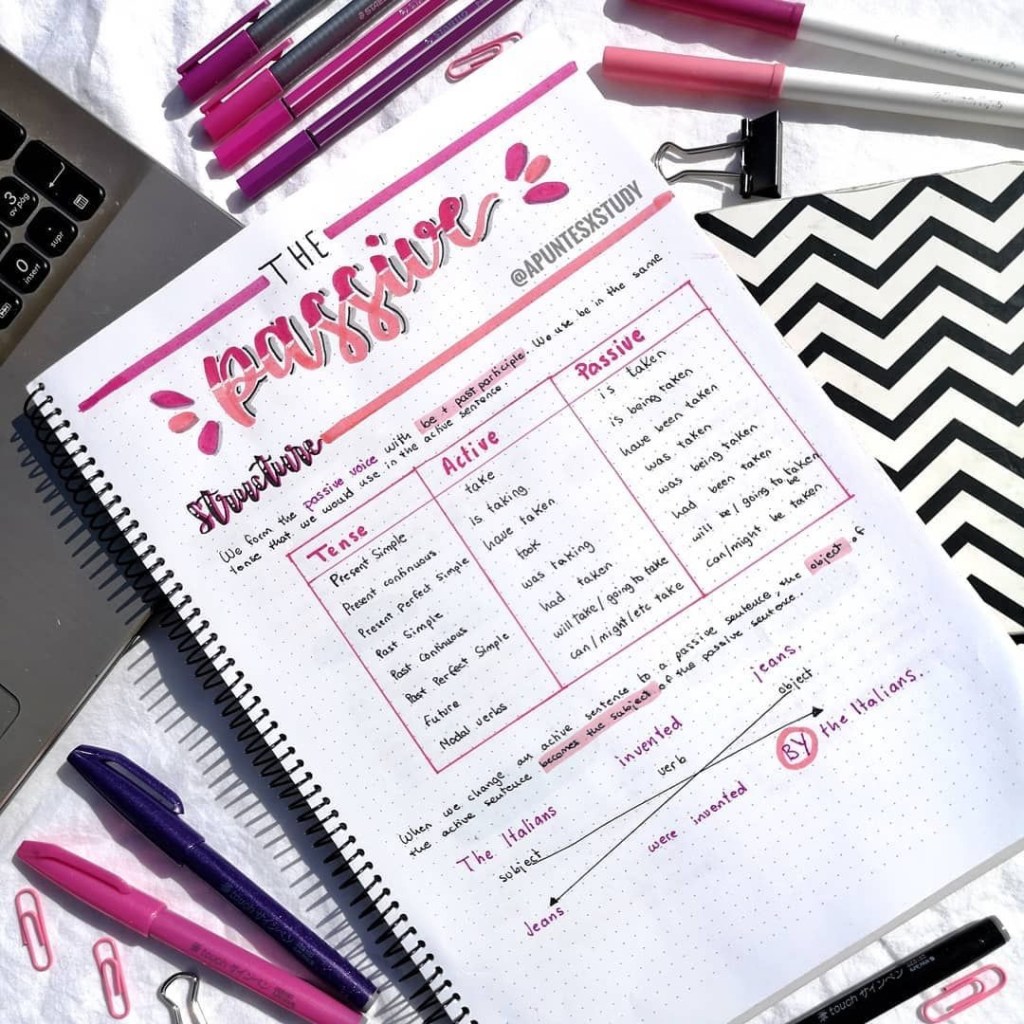 THE
passive
@APUNTESXSTUDY
structure
We form the passive voice with be + past participle. We use be in the same
tense that we would use in the active sentence.
Tense Active Passive
Present Simple take is taken
Present continuous is taking is being taken
Present Perfect Simple have taken have been taken
Past Simple took was taken
Past Continuous was taking was being taken
Past Perfect Simple had taken had been taken
Future will take/going to take will be/going to be taken
Modal verbs can/might/etc take can/might be taken
When we change an active sentence to a passive sentence, the object of
the active sentence becomes the subject of the passive sentence.
The Italians invented jeans.
subject verb object
Jeans were invented BY the Italians.
3
av pág
supr
0
insert
touch サインペン
touch サインペン
touch サインペン